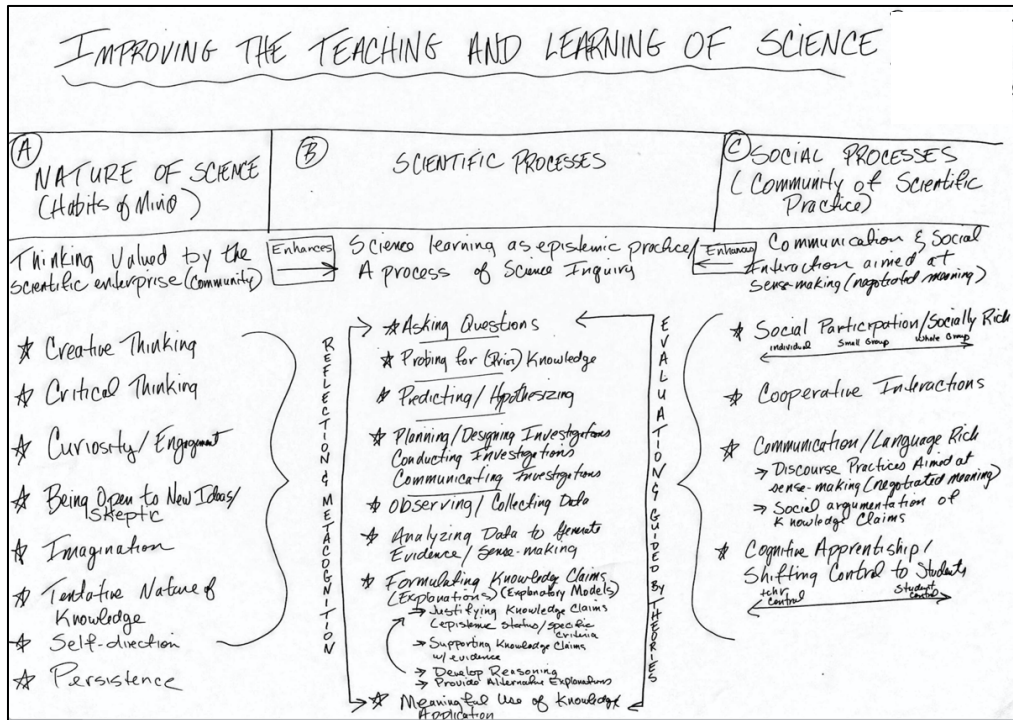 IMPROVING THE TEACHING AND LEARNING OF SCIENCE
A
NATURE OF SCIENCE
(Habits of Mind)
B
SCIENTIFIC PROCESSES
C SOCIAL PROCESSES
(Community of Scientific
Practice)
Thinking Valued by the
scientific enterprise (community)
Enhances
Science learning as epistemic practice/
A process of Science Inquiry
Enhances
Communication & Social
Interaction aimed at
sense-making (nagotiated meaning)
☆ Creative Thinking
☆ Critical Thinking
☆ Curiosity/Engagement
☆ Being Open to New Ideas/
Skeptic
☆ Imagination
☆ Tentative Nature of
Knowledge
☆ Self-direction
☆ Persistence
REFLECTION & METACOGNITION
☆ Asking Questions
☆ Probing for (Prior) Knowledge
☆ Predicting/Hypothesizing
☆ Planning/Designing Investigations
Conducting Investigations
Communicating Investigations
☆ Observing/Collecting Data
☆ Analyzing Data to Generate
Evidence/Sense-making
☆ Formulating Knowledge Claims
(Explanations) (Explanatory Models)
→ Justifying Knowledge Claims
(epistemic status/specific
criteria
→ Supporting Knowledge Claims
w/ evidence
→ Develop Reasoning
→ Provide Alternative Explanations
☆ Meaningful Use of Knowledge
Application
EVALUATION & GUIDED BY THEORIES
☆ Social Participation/Socially Rich
individual Small Group Whole Group
☆ Cooperative Interactions
☆ Communication/Language Rich
→ Discourse Practices Aimed at
sense-making (negotiated meaning)
→ Social argumentation of
Knowledge Claims
☆ Cognitive Apprentiship/
Shifting Control to Students
tchr control Student control